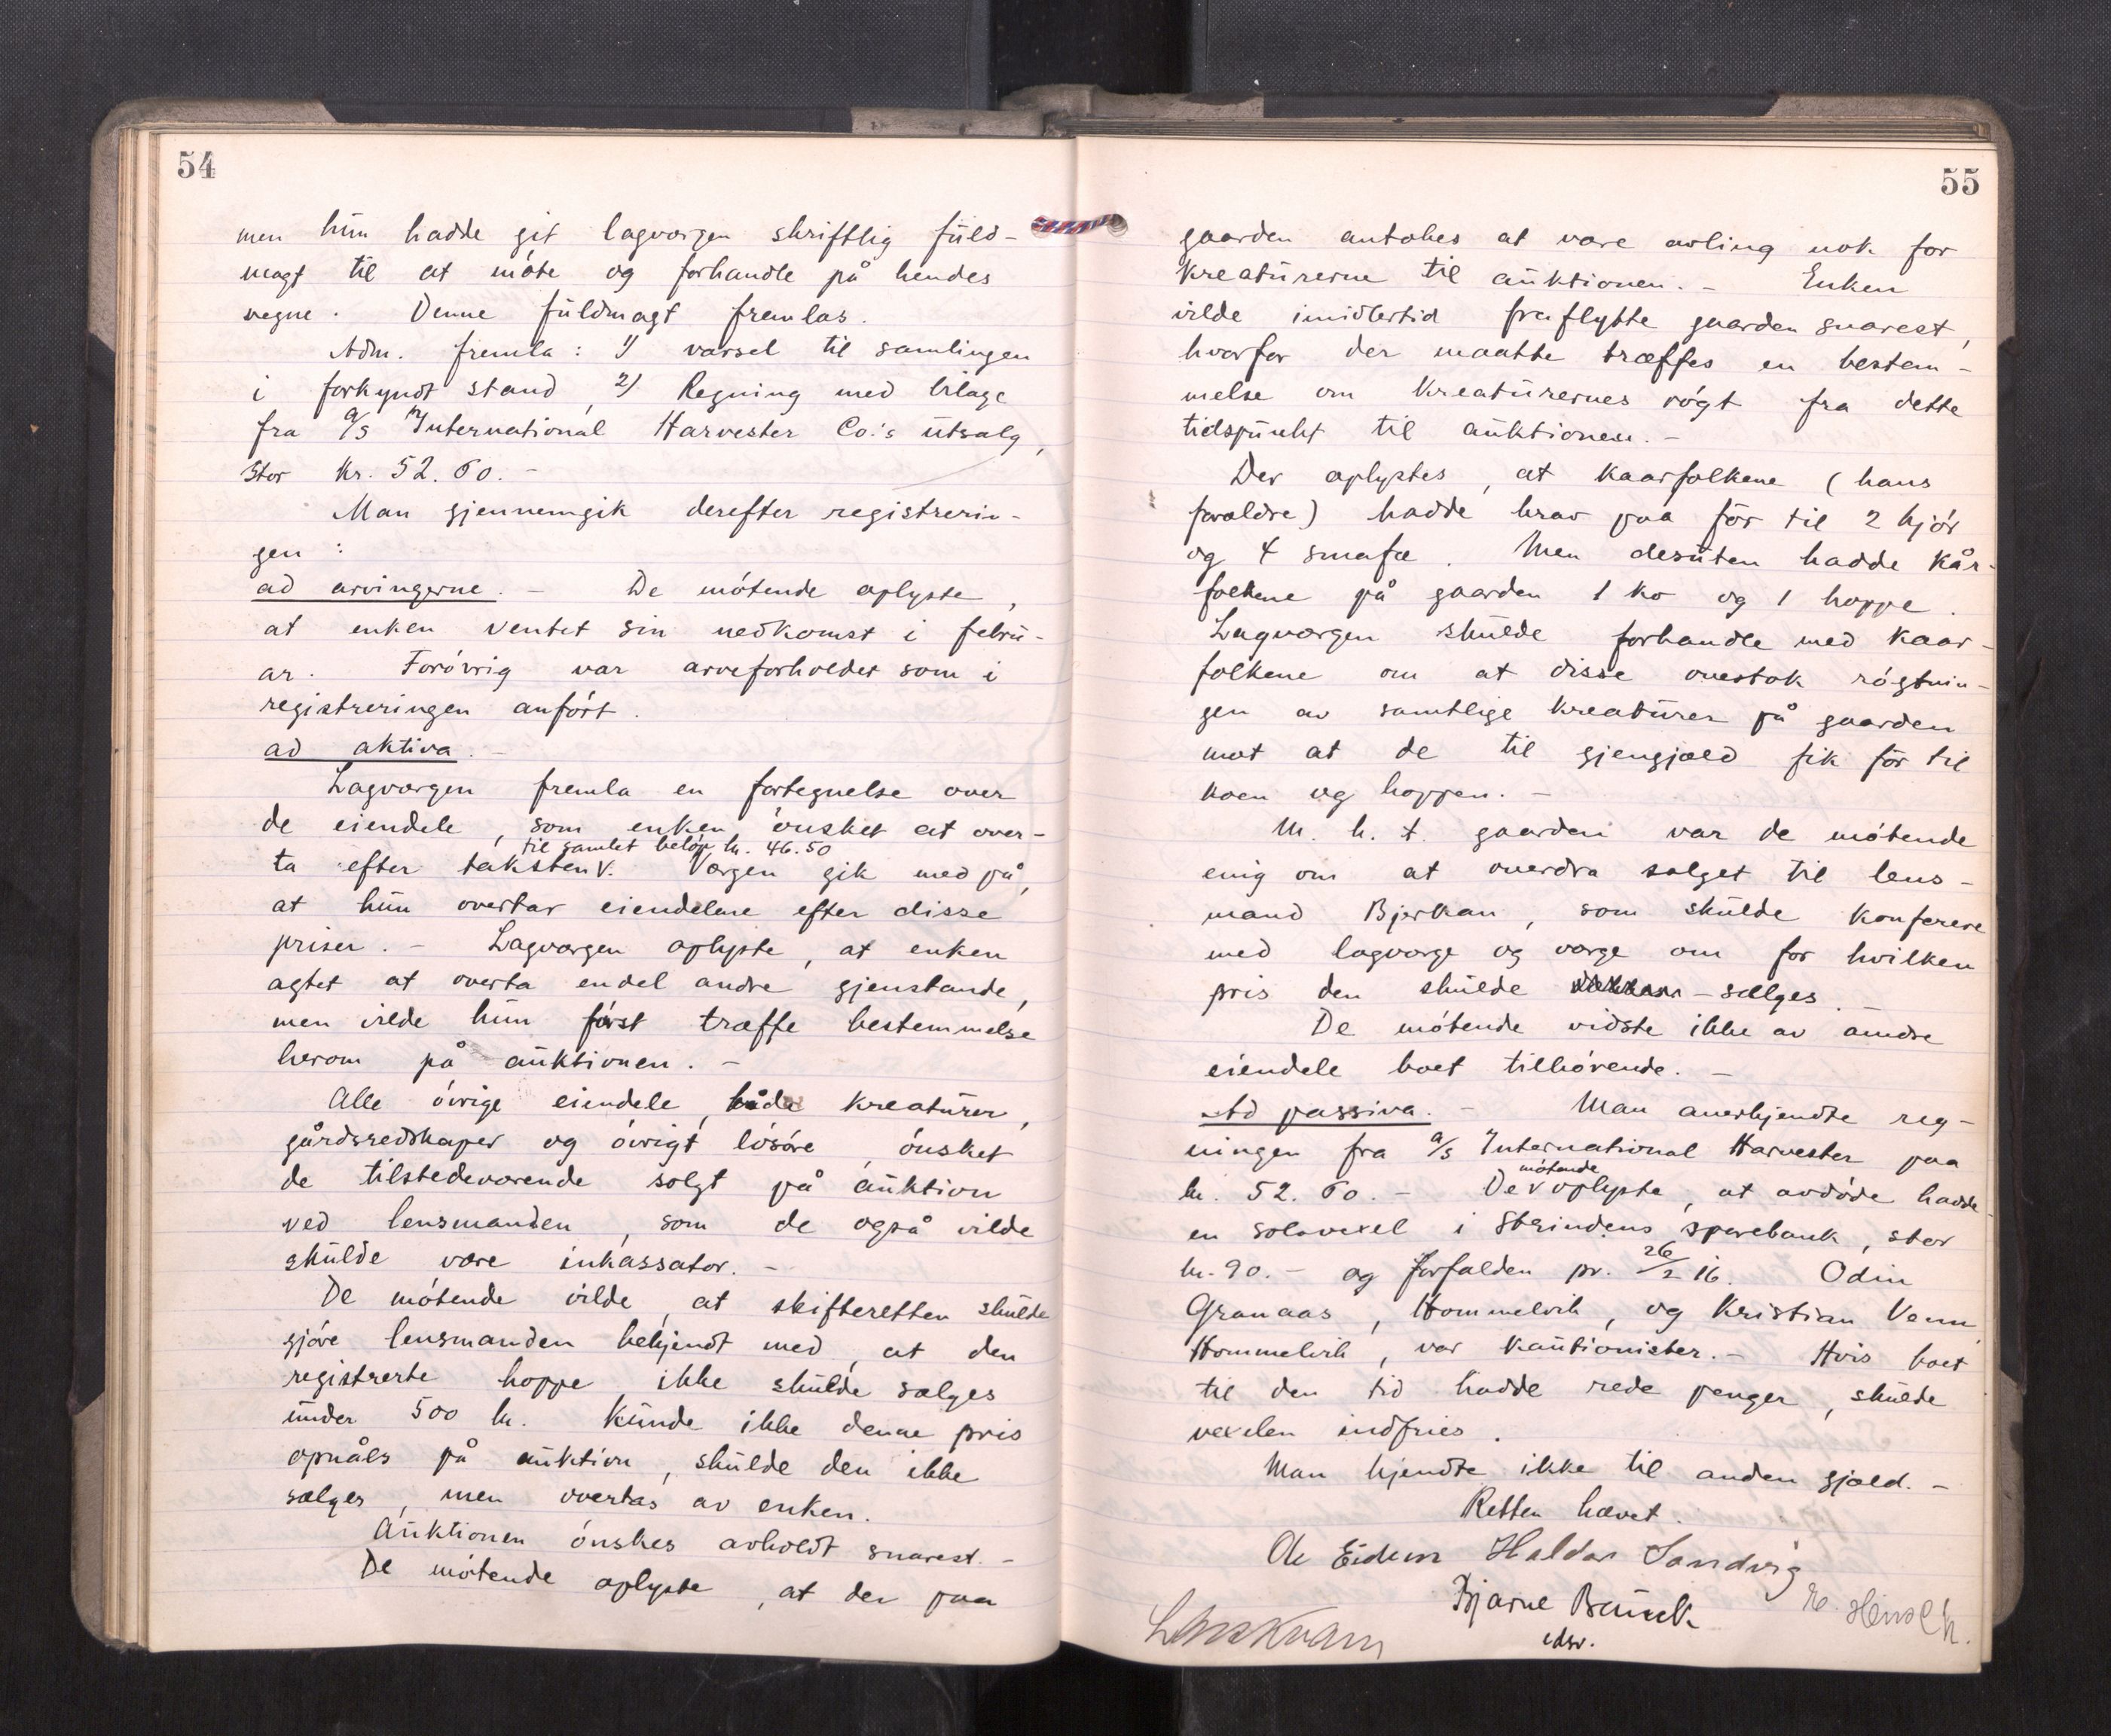 54
men hun hadde git lagværgen skriftlig fuld-
magt til at møte og forhandle på hendes
vegne. Denne fuldmagt fremlas.
Adm. fremla: 1) varsel til samlingen
i forkyndt stand, 2) Regning med bilage
fra A/S International Harvester Co.'s utsalg,
stor kr. 52.60.-
Man gjennemgik derefter registrerin-
gen:
ad arvingerne. - De møtende oplyste,
at enken ventet sin nedkomst i febru-
ar. Forøvrig var arveforholdet som i
registreringen anført.
ad aktiva. -
Lagværgen fremla en fortegnelse over
de eiendele, som enken ønsket at over-
til samlet beløp kr. 46.50
ta efter taksten. Værgen gik med på,
at hun overtar eiendelene efter disse
priser. - Lagværgen oplyste, at enken
agtet at overta endel andre gjenstande,
men vilde hun først træffe bestemmelse
herom på auktionen. -
Alle øvrige eiendele, både kreaturer,
gårdsredskaper og øvrigt løsøre, ønsket
de tilstedeværende solgt på auktion
ved lensmanden, som de også vilde
skulde være inkassator. -
De møtende vilde, at skifteretten skulde
gjøre lensmanden bekjendt med, at den
registrerte hoppe ikke skulde sælges
under 500 kr. Kunde ikke denne pris
opnåes på auktion, skulde den ikke
sælges, men overtas av enken.
Auktionen ønskes avholdt snarest. -
De møtende oplyste, at der paa
55
gaarden antokes at være avling nok for
kreaturerne til auktionen. - Enken
vilde imidlertid fraflytte gaarden snarest,
hvorfor der maatte træffes en bestem-
melse om kreaturernes røgt fra dette
tidspunkt til auktionen. -
Der oplystes, at kaarfolkene (hans
forældre) hadde krav paa fôr til 2 kjør
og 4 smafæ. Men desuten hadde kår-
folkene på gaarden 1 ko og 1 hoppe.
Lagværgen skulde forhandle med kaar-
folkene om at disse overtok røgtnin-
gen av samtlige kreaturer på gaarden
mot at de til gjengjæld fik fôr til
koen og hoppen. -
M. h. t. gaarden var de møtende
enig om at overdra salget til lens-
mand Bjerkan, som skulde konferere
med lagværge og værge om for hvilken
pris den skulde - sælges. -
De møtende vidste ikke av andre
eiendele boet tilhørende. -
Ad passiva. - Man anerkjendte reg-
ningen fra A/S International Harvester paa
møtende
kr. 52.60. - De oplyste, at avdøde hadde
en solavexel i Strindens sparebank, stor
kr. 90. - og forfalden pr. 26/2 16. Odin
Granaas, Hommelvik, og Kristian Venn
Hommelvik, var kautionister. - Hvis boet
til den tid hadde rede penger, skulde
vexelen indfries.
Man kjendte ikke til anden gjæld. -
Retten hævet.
Ole Eidem Haldor Sandvig
Bjarne E. Hirsch.
Lars Kvam
edsv.